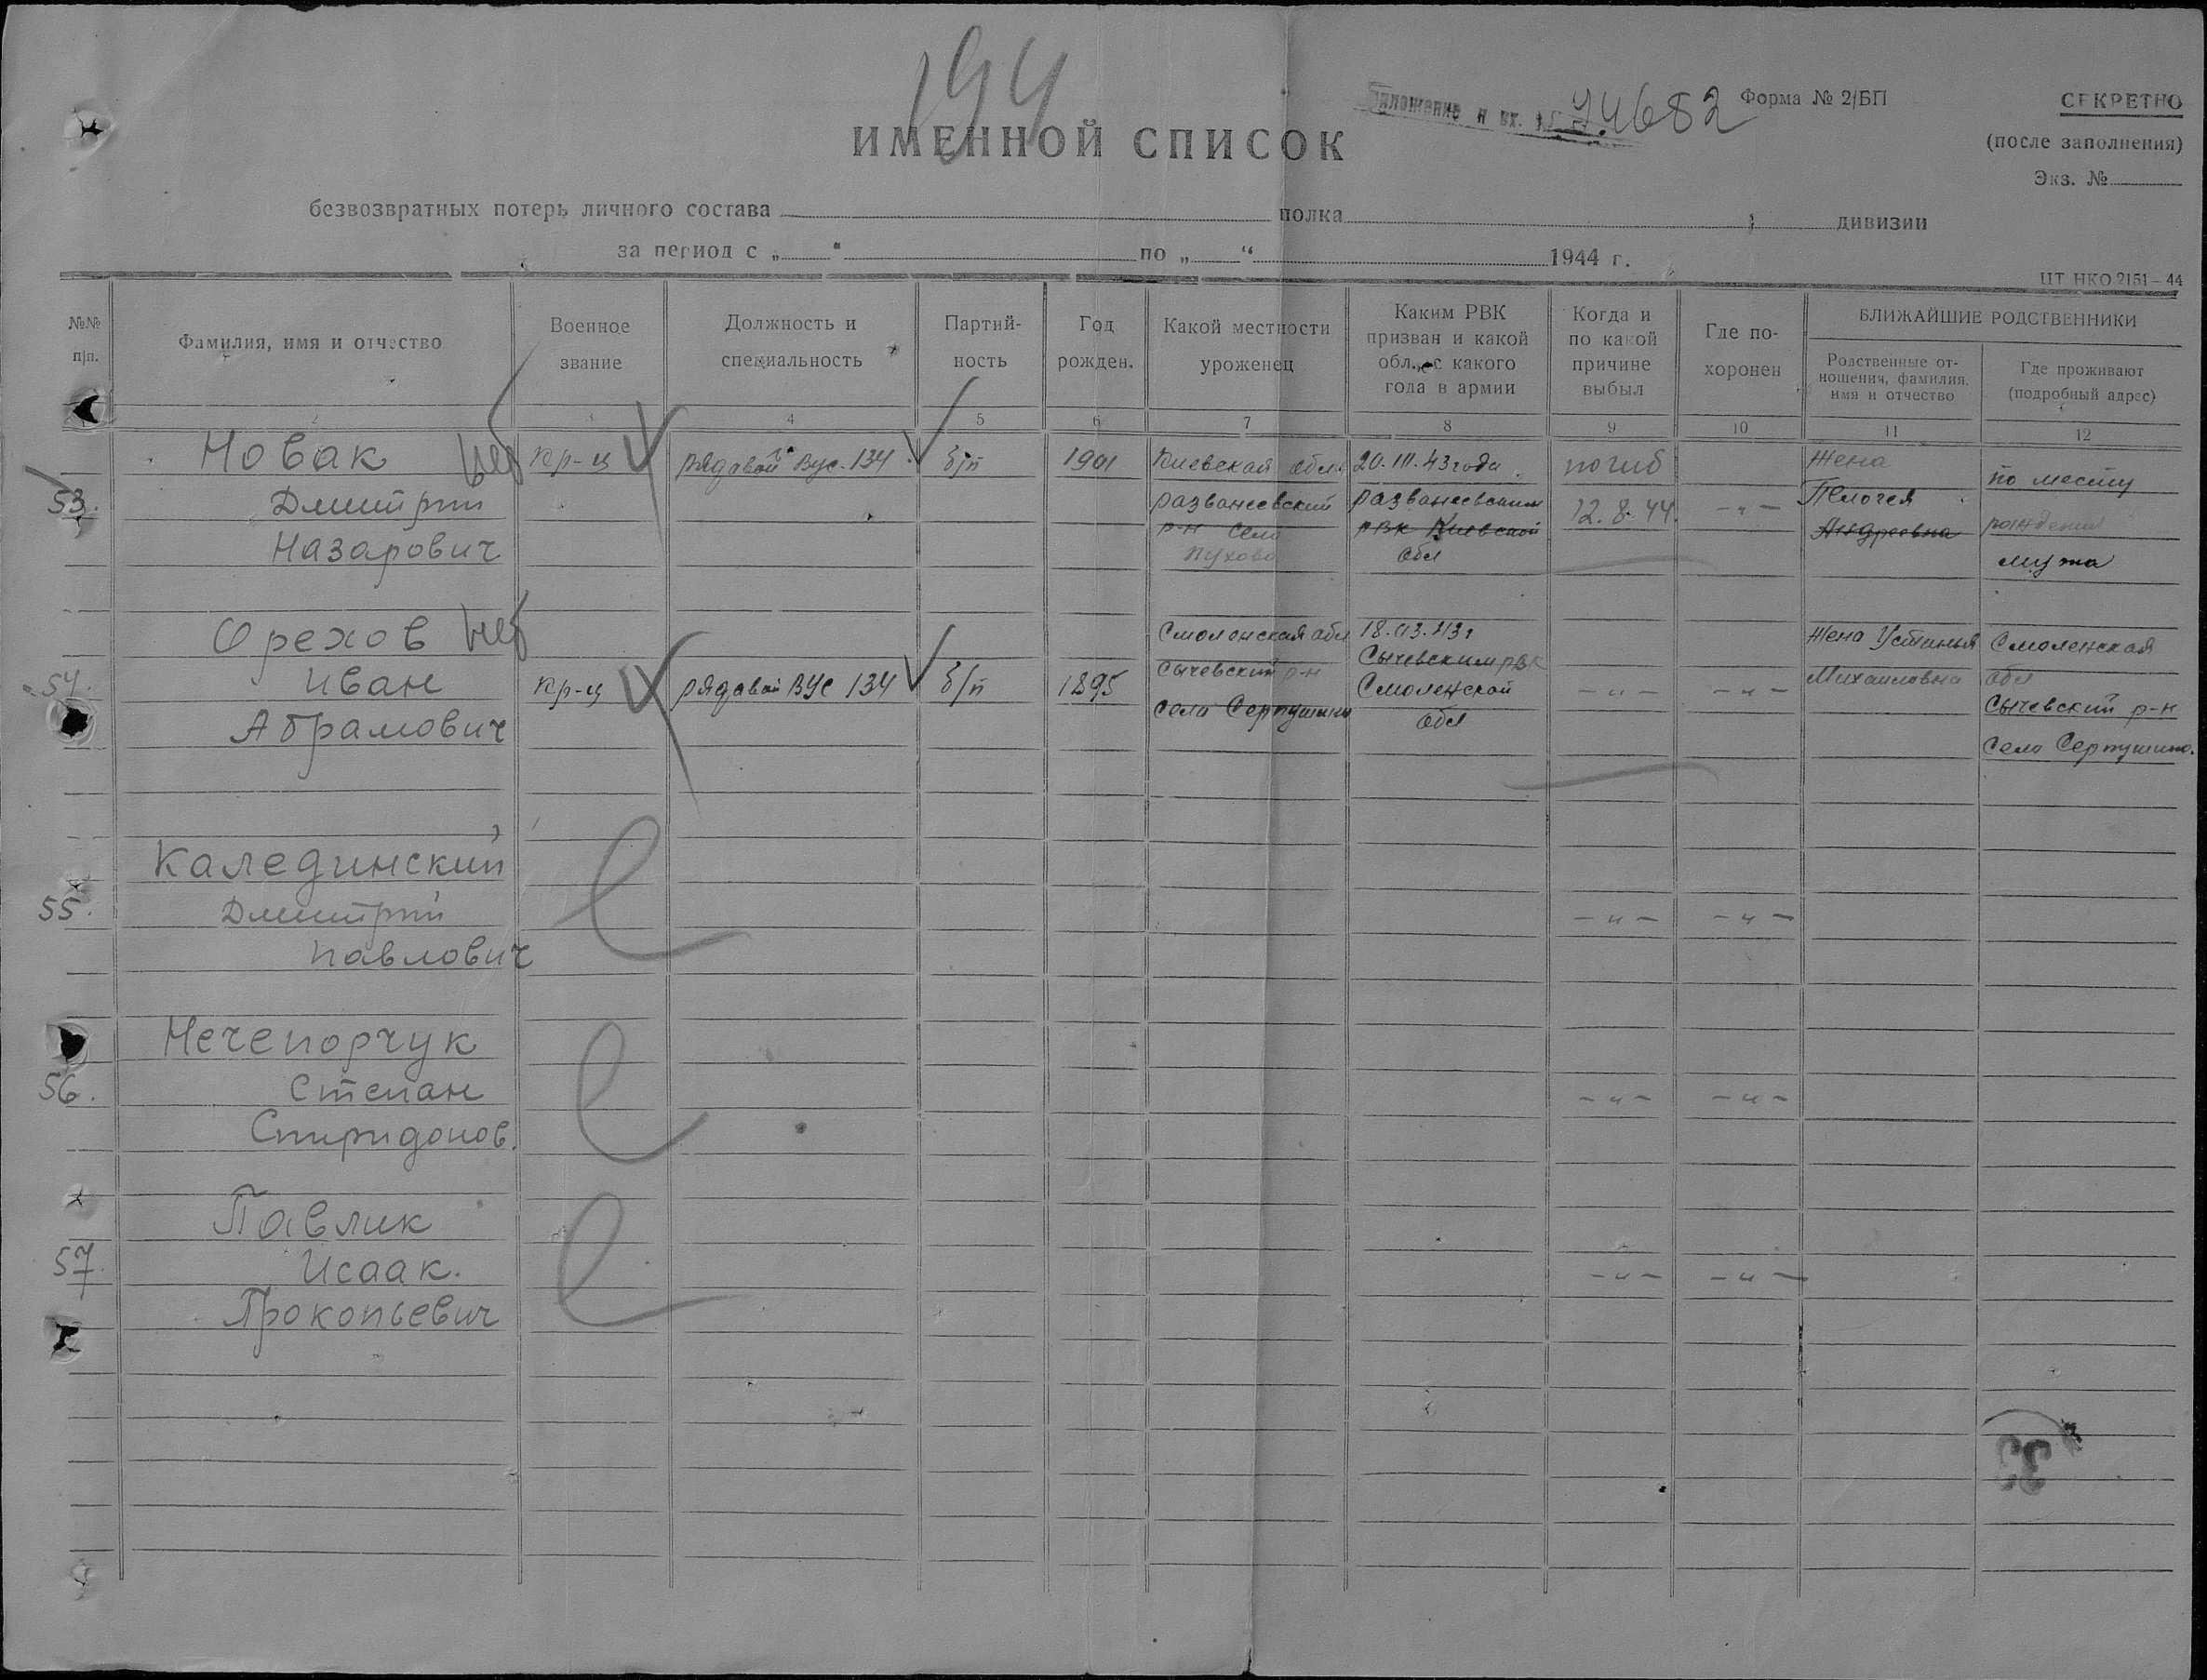 194
74682
Форма № 2/БП
СЕКРЕТНО
(после заполнения)
Экз. №
ИМЕННОЙ СПИСОК
безвозвратных потерь личного состава полка дивизии
за период с „ “ по „ “ 1944 г.
ЦТ НКО 2151—44
№№ п/п.
Фамилия, имя и отчество
Военное звание
Должность и специальность
Партий-
ность
Год рожден.
Какой местности уроженец
Каким РВК
призван и какой
обл., с какого
года в армии
Когда и
по какой
причине
выбыл
Где по-
хоронен
БЛИЖАЙШИЕ РОДСТВЕННИКИ
Родственные от-
ношения, фамилия,
имя и отчество
Где проживают
(подробный адрес)
2 3 4 5 6 7 8 9 10 11 12
53.
Новак
Дмитрий
Назарович
кр-ц
рядовой Вус-134
б/п
1901
Киевской обл.
разваневский
р-н село
Пухова
20.III.43 года
разваневским
РВК Киевской
обл
погиб
12.8.44.
-"-
Жена
Пелогея
Андреевна
по месту
рождения
мужа
54.
Орехов
Иван
Абрамович
кр-ц
рядовой ВУС 134
б/п
1895
Смоленская обл
Сычевский р-н
село Серпушино
18.03.43г
Сычевским РВК
Смоленской
обл
-"-
-"-
Жена Устинья
Михайловна
Смоленская
обл
Сычевский р-н
село Серпушино.
55.
Калединский
Дмитрий
Павлович
-"-
-"-
56.
Нечепорчук
Степан
Спиридонов.
-"-
-"-
57.
Павлик
Исаак.
Прокопьевич
-"-
-"-